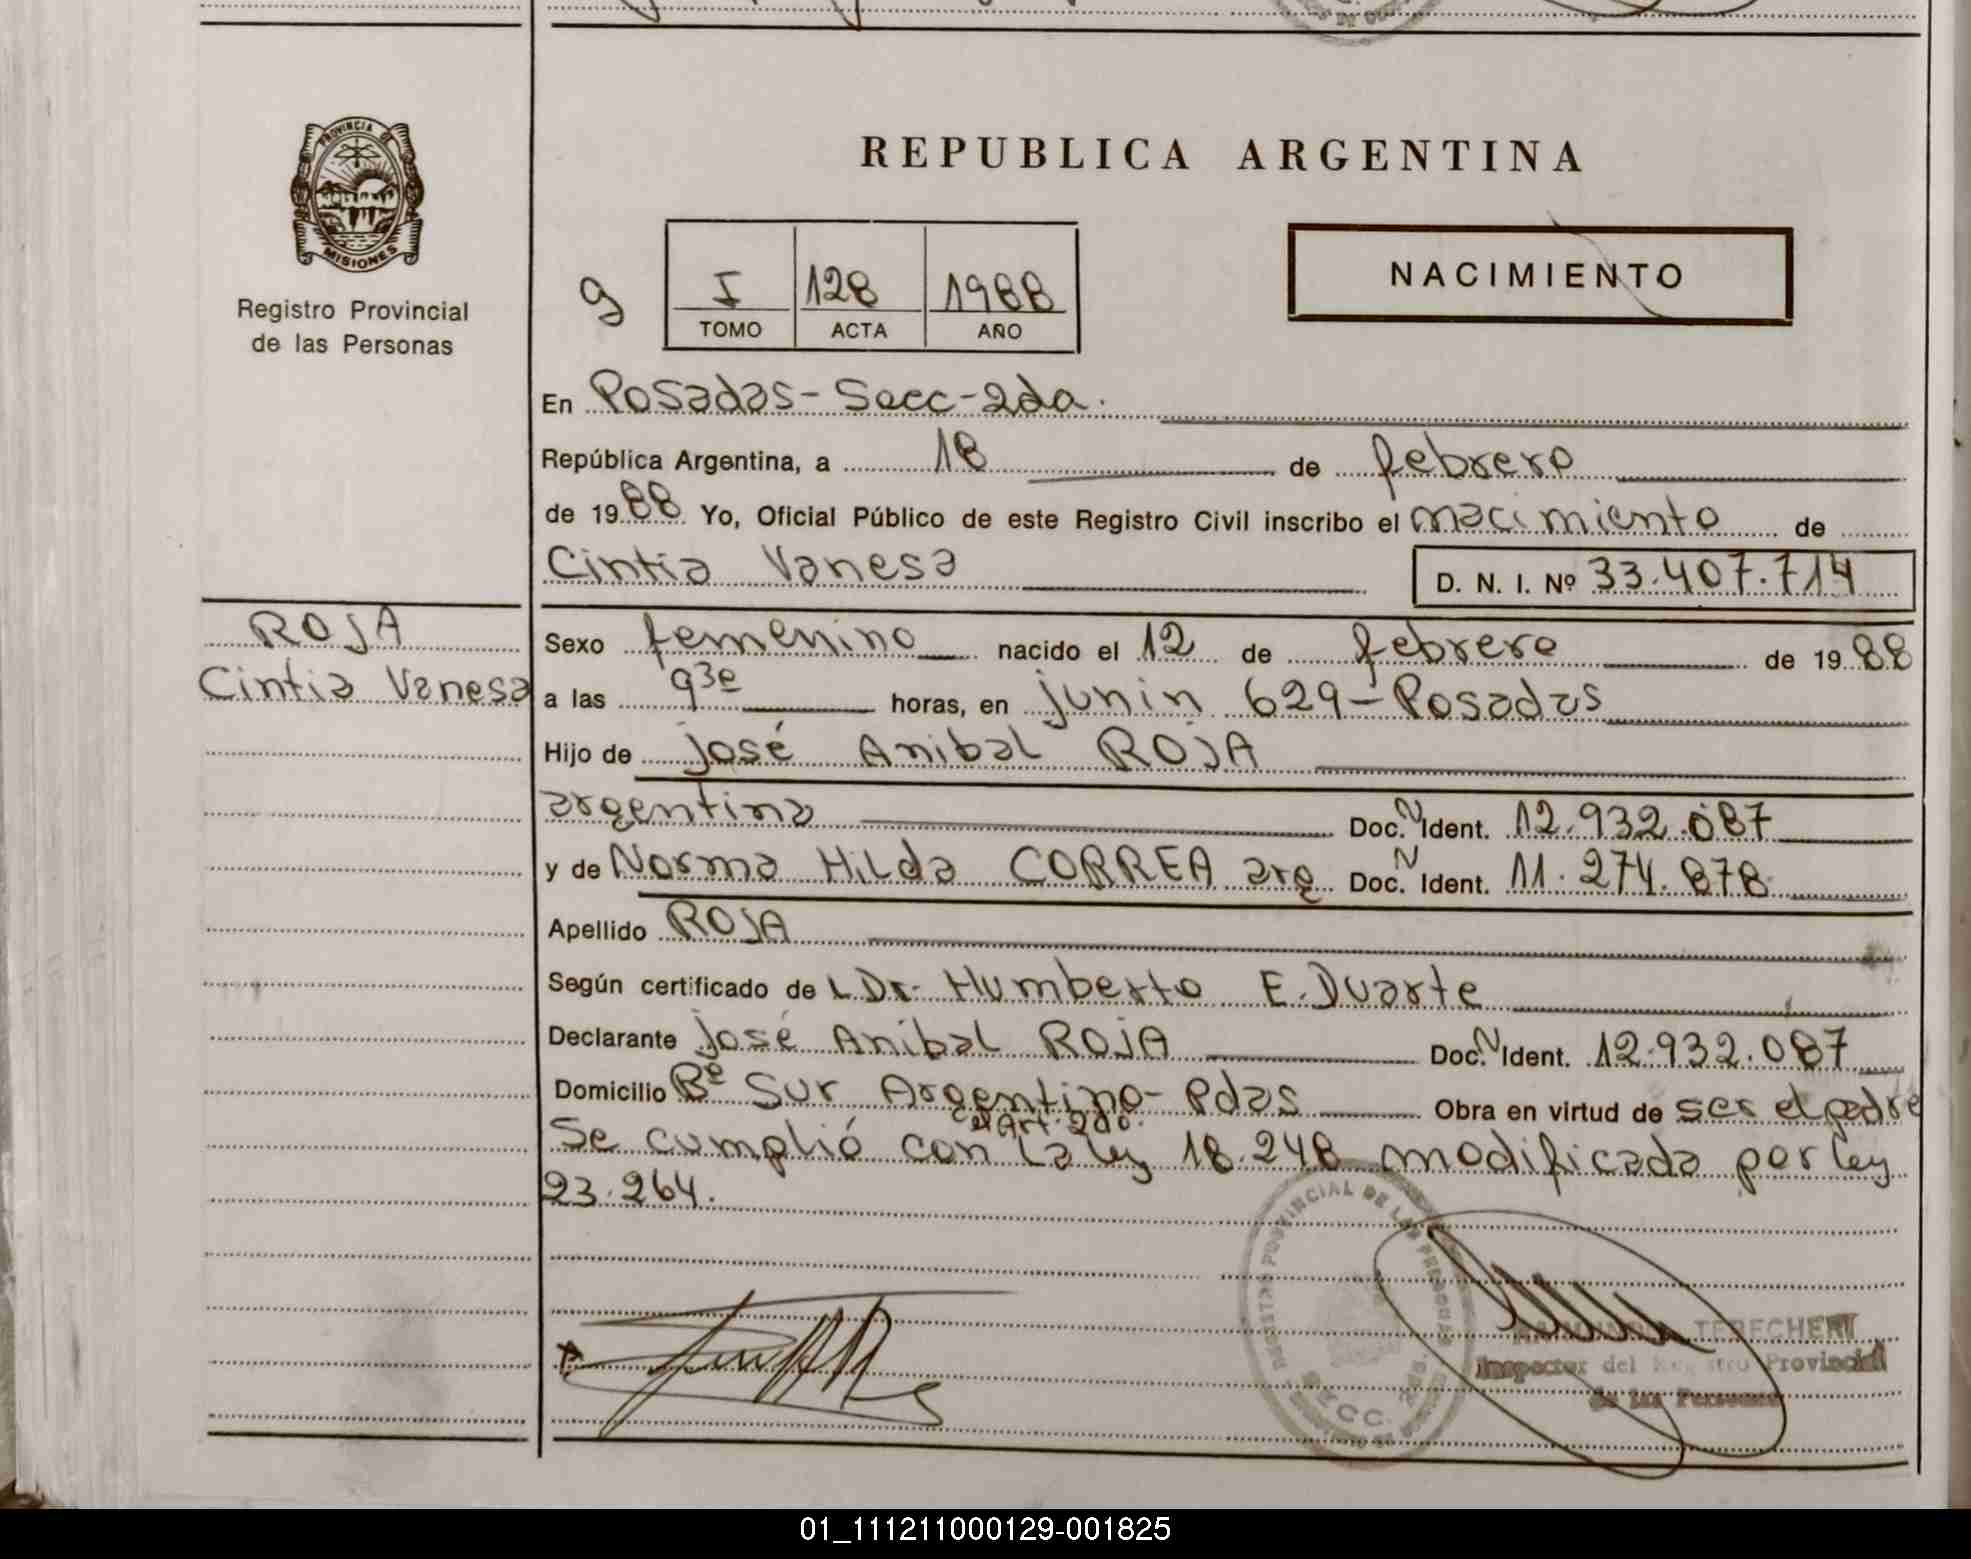 PROVINCIA DE
MISIONES
Registro Provincial
de las Personas
REPUBLICA ARGENTINA
9
I 128 1988
TOMO ACTA AÑO
NACIMIENTO
En Posadas-Secc-2da.
República Argentina, a 18 de febrero
de 1988 Yo, Oficial Público de este Registro Civil inscribo el nacimiento de
Cintia Vanesa D. N. I. Nº 33.407.714
ROJA
Cintia Vanesa
Sexo femenino nacido el 12 de febrero de 1988
a las 9 30 horas, en junin 629-Posadas
Hijo de José Anibal ROJA
argentina Doc. N Ident. 12.932.087
y de Norma Hilda CORREA arg Doc. N Ident. 11.274.878
Apellido ROJA
Según certificado de L Dr. Humberto E. Duarte
Declarante José Anibal ROJA Doc. N Ident. 12.932.087
Domicilio Bº Sur Argentino-Pdas Obra en virtud de ser el padre
el Art. 2do.
Se cumplió con La ley 18.248 modificada por ley
23.264.
REGISTRO PROVINCIAL DE LAS PERSONAS
SECC. 2da.
TERECHEN
Inspector del Registro Provincial
de las Personas
01_111211000129-001825